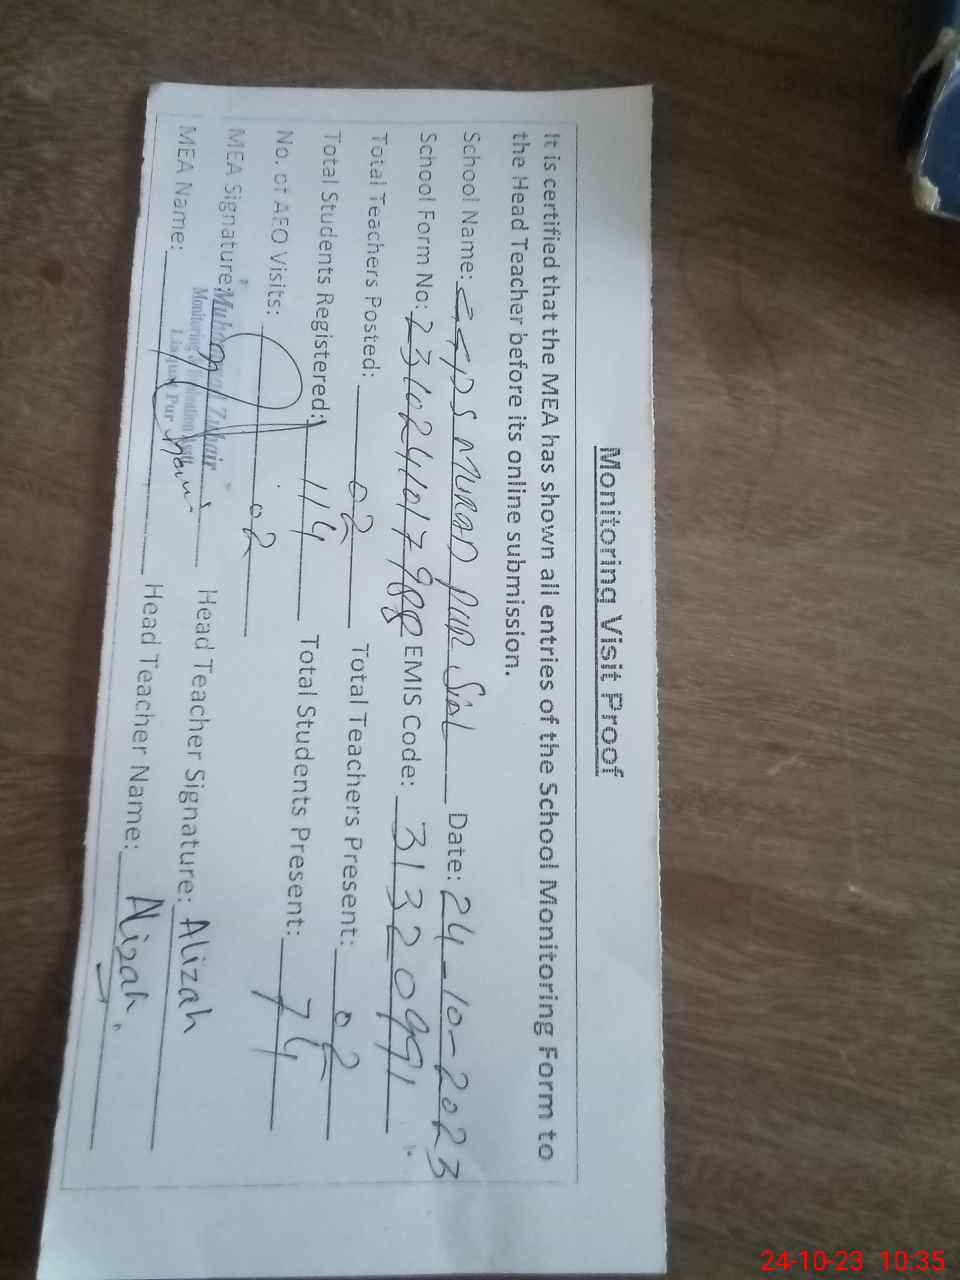 Monitoring Visit Proof
It is certified that the MEA has shown all entries of the School Monitoring Form to
the Head Teacher before its online submission.
School Name: GGPS MURAD PUR SIAL Date: 24-10-2023
School Form No: 2310241017988 EMIS Code: 31320991
Total Teachers Posted: 02 Total Teachers Present: 02
Total Students Registered: 114 Total Students Present: 74
No. of AEO Visits: 02
MEA Signature: Head Teacher Signature: Alizah
Muhammad Zubair
Monitoring & Evaluation
Liaquat Pur
MEA Name: Head Teacher Name: Alizah
24-10-23 10:35